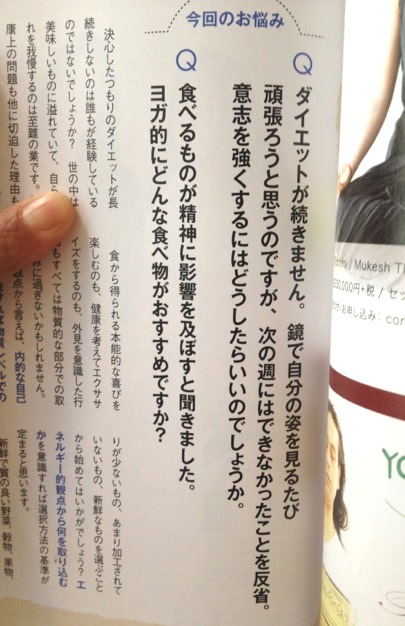 今回のお悩み
Q ダイエットが続きません。鏡で自分の姿を見るたび
頑張ろうと思うのですが、次の週にはできなかったことを反省。
意志を強くするにはどうしたらいいのでしょうか。
Q 食べるものが精神に影響を及ぼすと聞きました。
ヨガ的にどんな食べ物がおすすめですか？
決心したつもりのダイエットが長
続きしないのは誰もが経験している
のではないでしょうか？ 世の中は
美味しいもので溢れていて、自ら
れを我慢するのは至難の業です。
康上の問題も他に切迫した理由も
食から得られる本能的な喜びを
楽しむのも、健康を考えてエクササ
イズをするのも、外見を意識した行
もすべては物質的な部分での取
みに過ぎないかもしれません。
観点から言えば、内的な自己
りが少ないもの、あまり加工されて
いないもの、新鮮なものを選ぶこと
から始めてはいかがでしょう？ エ
ネルギー的観点から何を取り込む
かを意識すれば選択方法の基準が
定まると思います。
新鮮で質の良い野菜、穀物、果物、
/ Mukesh T
0,000円+税 / セッ
お申し込み：con
YO